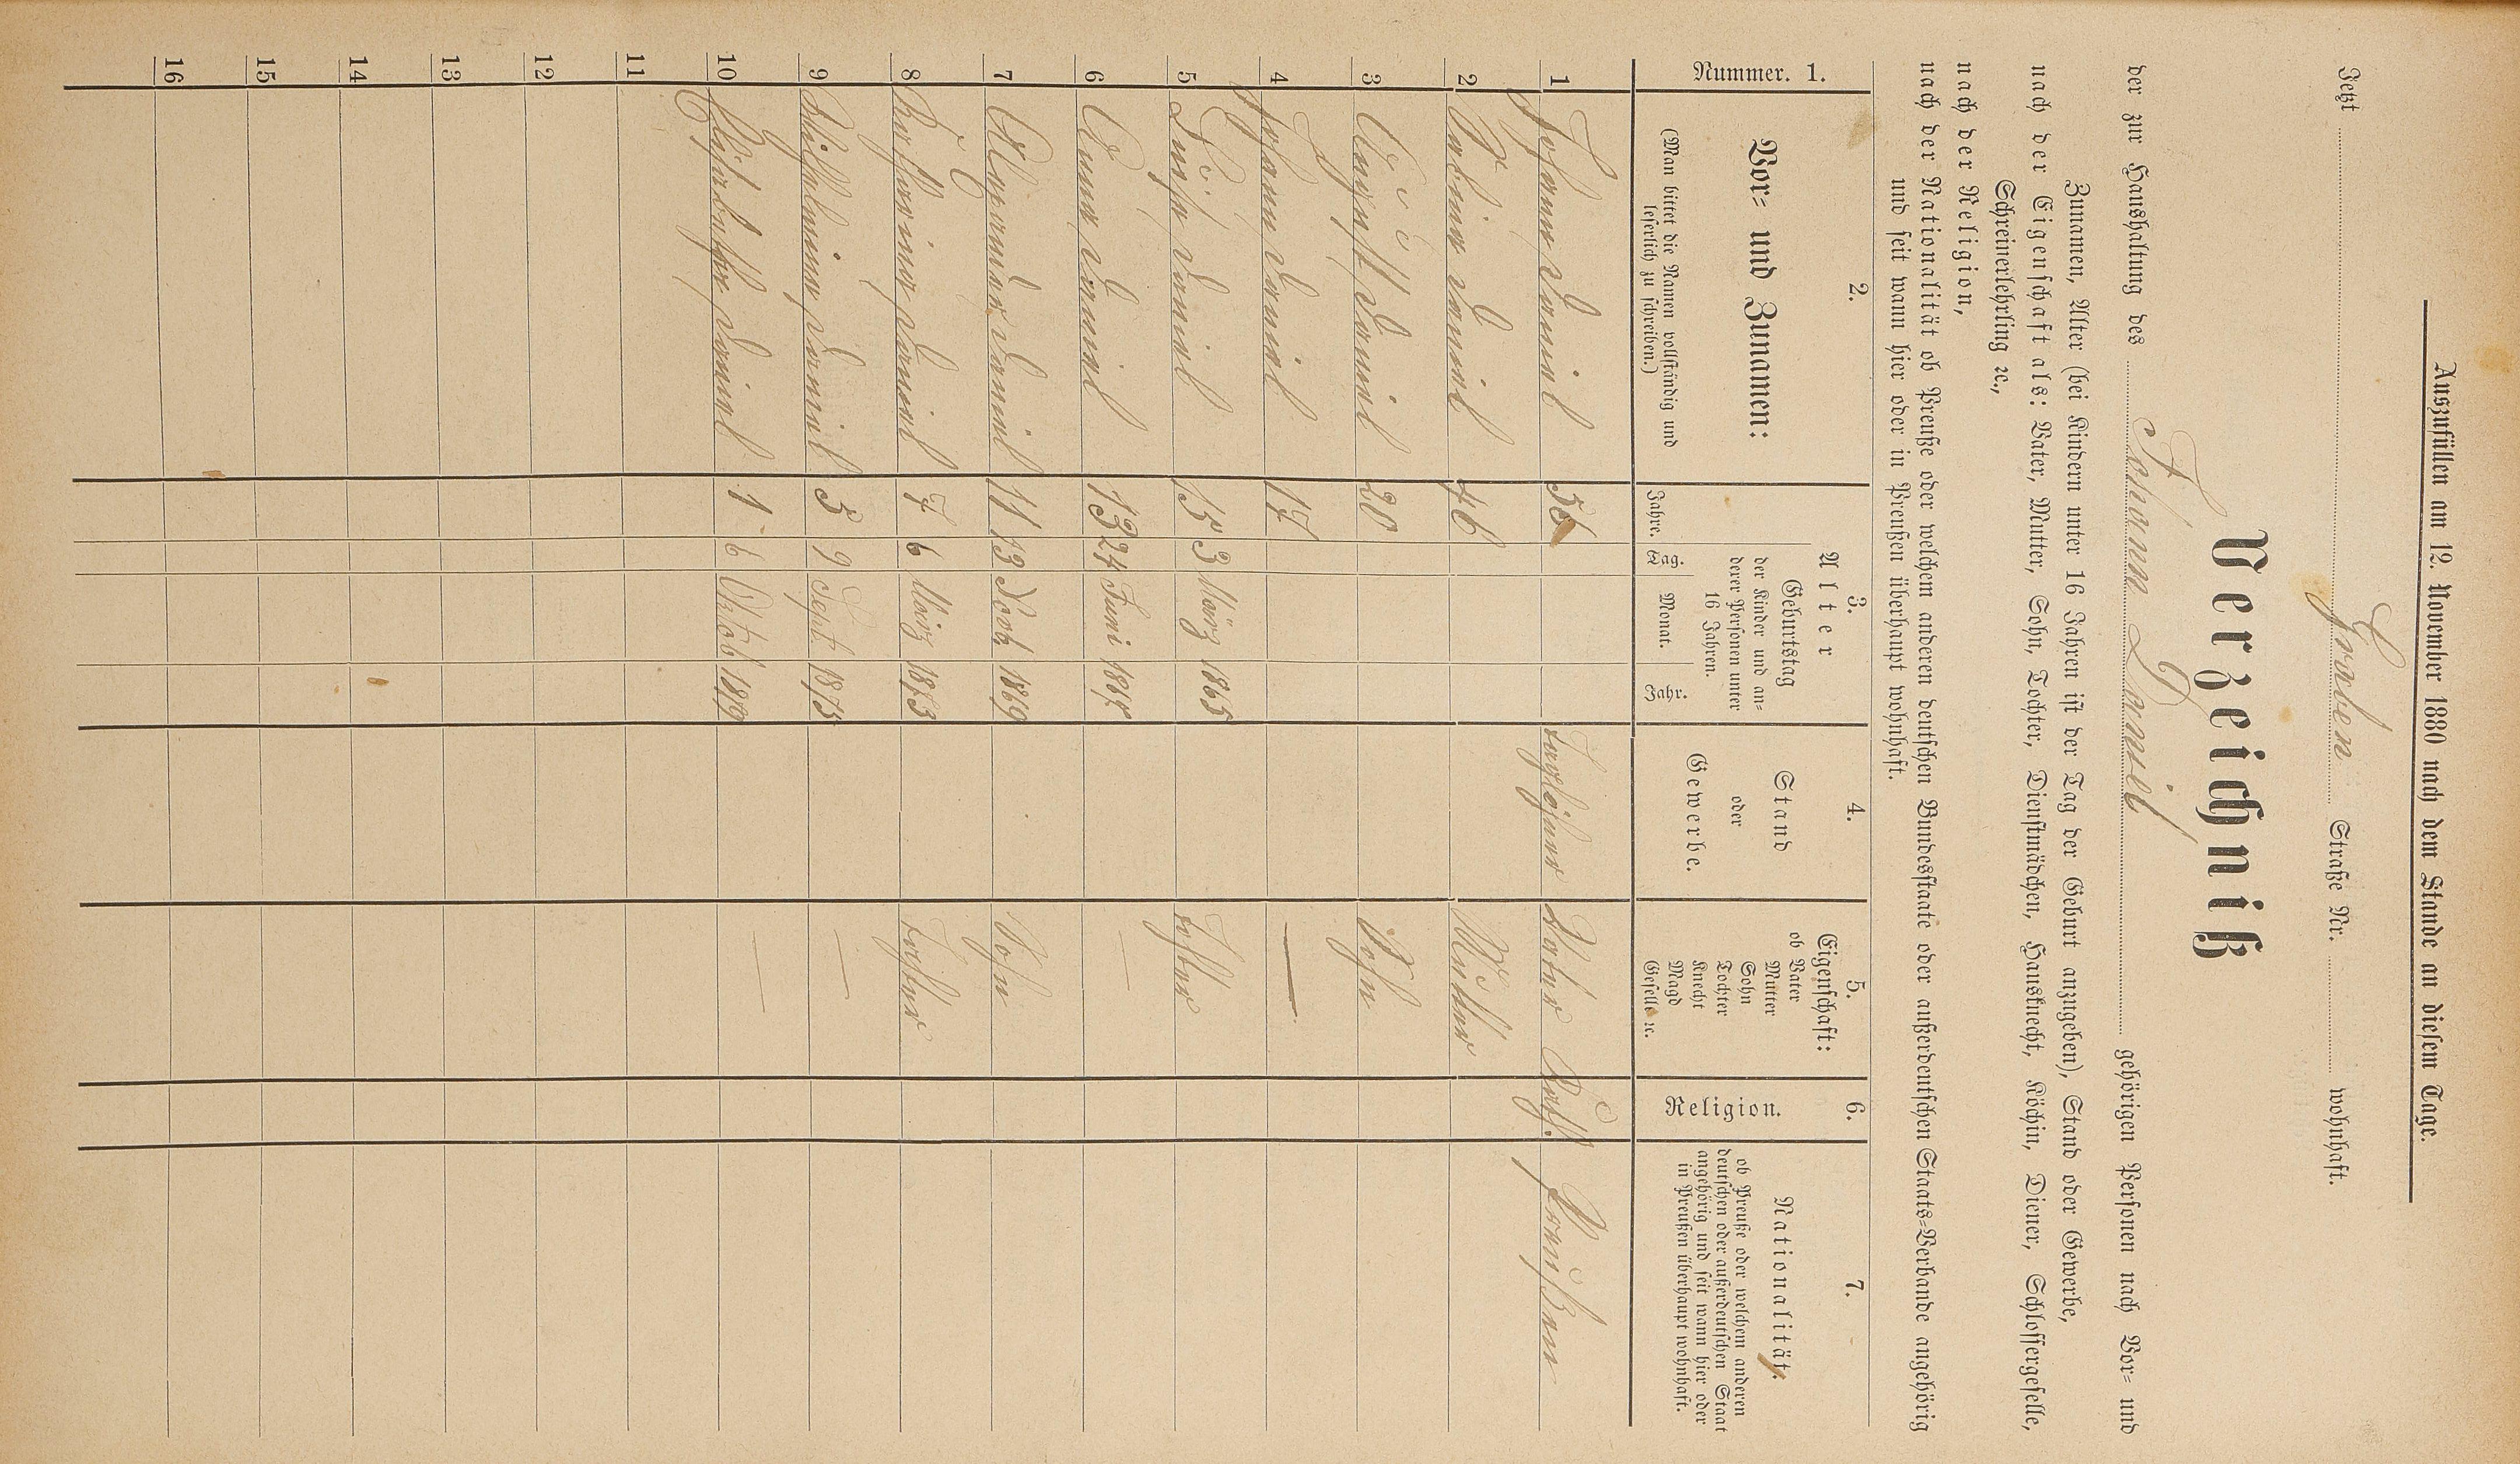 Auszufüllen am 12. November 1880 nach dem Stande an diesem Tage.
Jetzt Graben Straße Nr. wohnhaft.
Verzeichniß
der zur Haushaltung des Johann Daniel gehörigen Personen nach Vor- und
Zunamen, Alter (bei Kindern unter 16 Jahren ist der Tag der Geburt anzugeben), Stand oder Gewerbe,
nach der Eigenschaft als: Vater, Mutter, Sohn, Tochter, Dienstmädchen, Hausknecht, Köchin, Diener, Schlossergeselle,
Schreinerlehrling ꝛc.,
nach der Religion,
nach der Nationalität ob Preuße oder welchem anderen deutschen Bundesstaate oder außerdeutschen Staats-Verbande angehörig
und seit wann hier oder in Preußen überhaupt wohnhaft.
1. Nummer.
2.
Vor- und Zunamen:
(Man bittet die Namen vollständig und
leserlich zu schreiben.)
3.
Alter
Jahre.
Geburtstag
der Kinder und an-
derer Personen unter
16 Jahren.
Tag. Monat. Jahr.
4.
Stand
oder
Gewerbe.
5.
Eigenschaft:
ob Vater
Mutter
Sohn
Tochter
Knecht
Magd
Geselle ꝛc.
6.
Religion.
7.
Nationalität:
ob Preuße oder welchem anderen
deutschen oder außerdeutschen Staat
angehörig und seit wann hier oder
in Preußen überhaupt wohnhaft.
1 Johann Daniel 56 Taglöhner Vater Kath. Preußen
2 Sabina Daniel 46 Mutter
3 August Daniel 20 Sohn
4 Johann Daniel 17 —
5 Luise Daniel 15 3 März 1865 Tochter
6 Anna Daniel 13 24 Juni 1867 —
7 Alexander Daniel 11 13 Novb 1869 Sohn
8 Katharina Daniel 7 6 März 1873 Tochter
9 Wilhelmina Daniel 5 9 Sept. 1875 —
10 Elisabetha Daniel 1 6 Oktob 1879 —
11
12
13
14
15
16